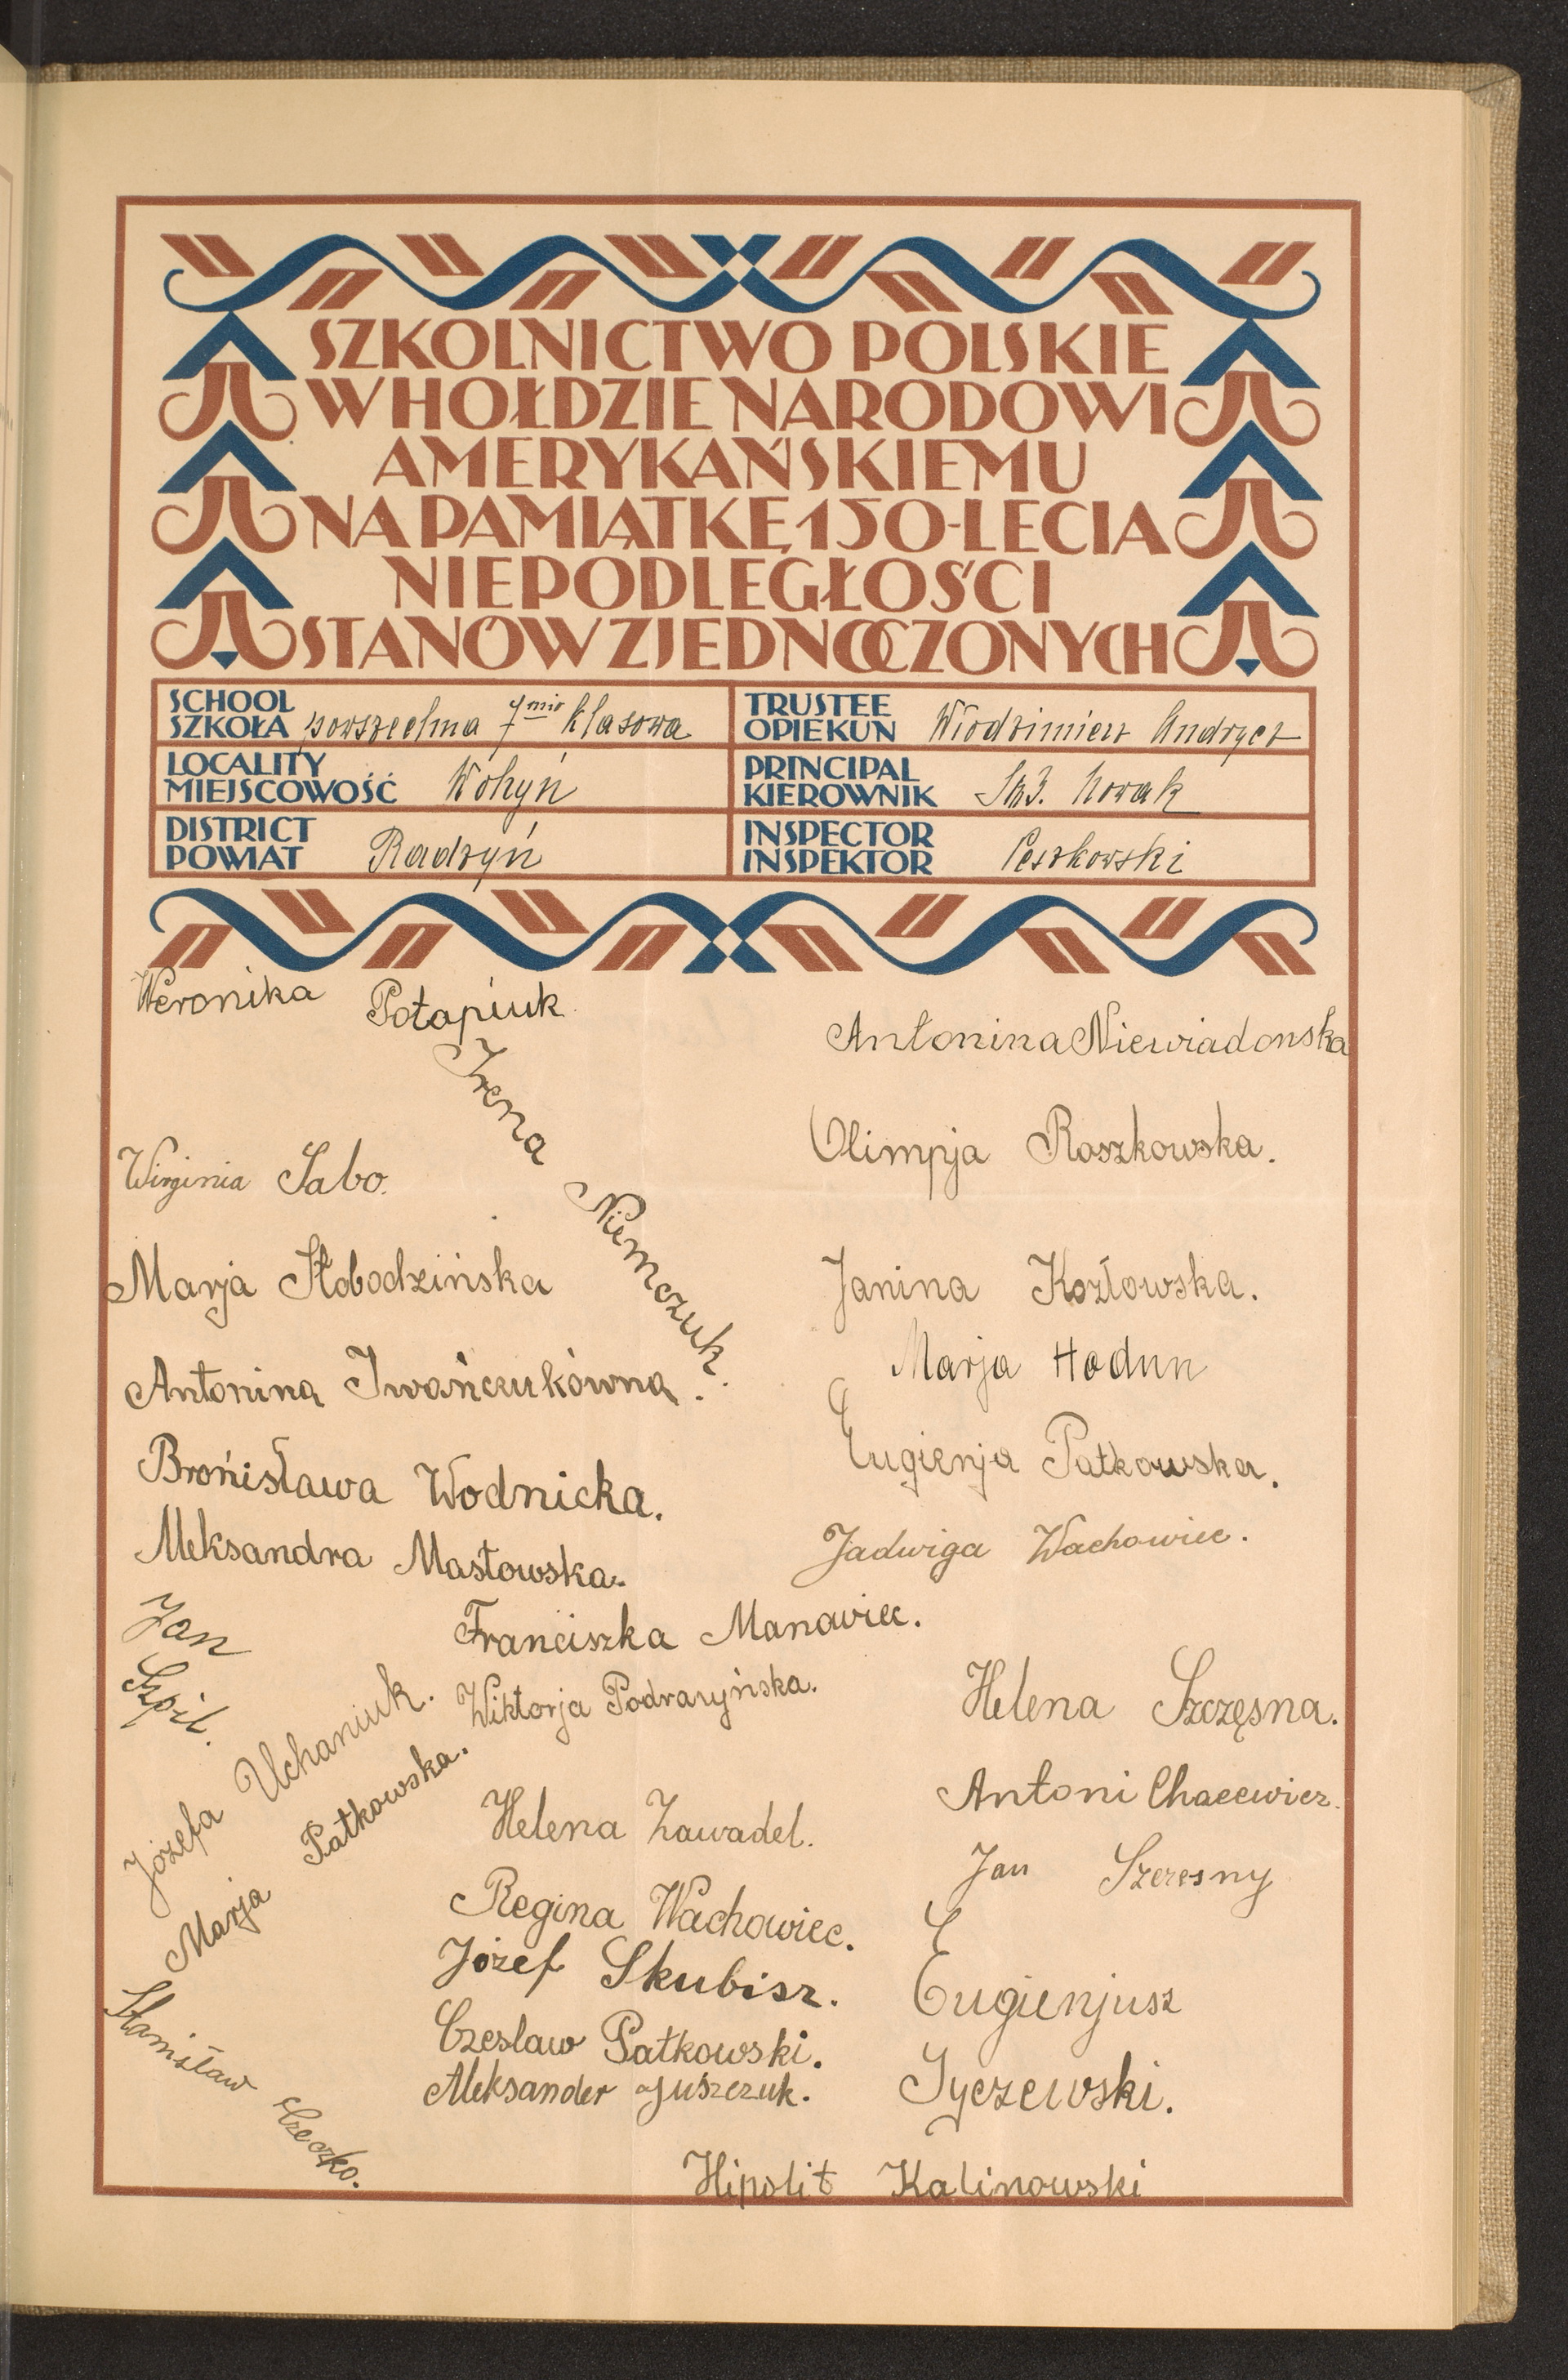 SZKOLNICTWO POLSKIE
W HOŁDZIE NARODOWI
AMERYKAŃSKIEMU
NA PAMIĄTKĘ 150-LECIA
NIEPODLEGŁOŚCI
STANÓW ZJEDNOCZONYCH
SCHOOL
SZKOŁA powszechna 7mio klasowa
TRUSTEE
OPIEKUN Włodzimierz Andrycz
LOCALITY
MIEJSCOWOŚĆ Wohyń
PRINCIPAL
KIEROWNIK Nowak
DISTRICT
POWIAT Radzyń
INSPECTOR
INSPEKTOR Peszkowski
Weronika Potapiuk
Irena Niemczuk.
Wirginia Sabo.
Marja Słobodzińska
Antonina Iwańczukówna.
Bronisława Wodnicka.
Aleksandra Masłowska.
Jan
Szpil.
Józefa Uchaniuk.
Marja Patkowska.
Stanisław
Franciszka Manowiec.
Wiktorja Podrazyńska.
Helena Zawadel.
Regina Wachowiec.
Józef Skubisz.
Czesław Patkowski.
Aleksander Juszczuk.
Antonina Niewiadonska
Olimpja Roszkowska.
Janina Kozłowska.
Marja Hodun
Eugienja Patkowska.
Jadwiga Wachowiec.
Helena Szczęsna.
Antoni Chacewicz.
Jan Szczesny
Eugienjusz
Jyczewski.
Hipolit Kalinowski